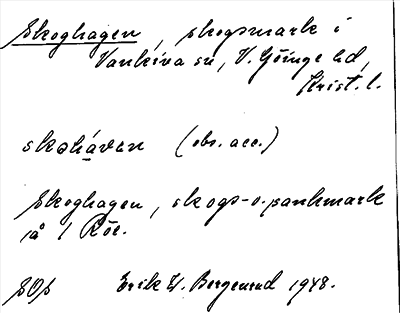 Skoghagen, skogsmark i
Vankiva sn, V. Göinge hd,
Krist. l.
skohávan (obs. acc.)
Skoghagen, skogs- o. sankmark
på 1 Röe.
SOS Erik W. Bergenrud 1948.